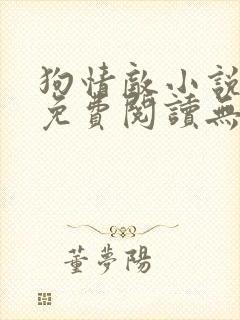 狗情敵小說
免費閱讀無
董夢陽